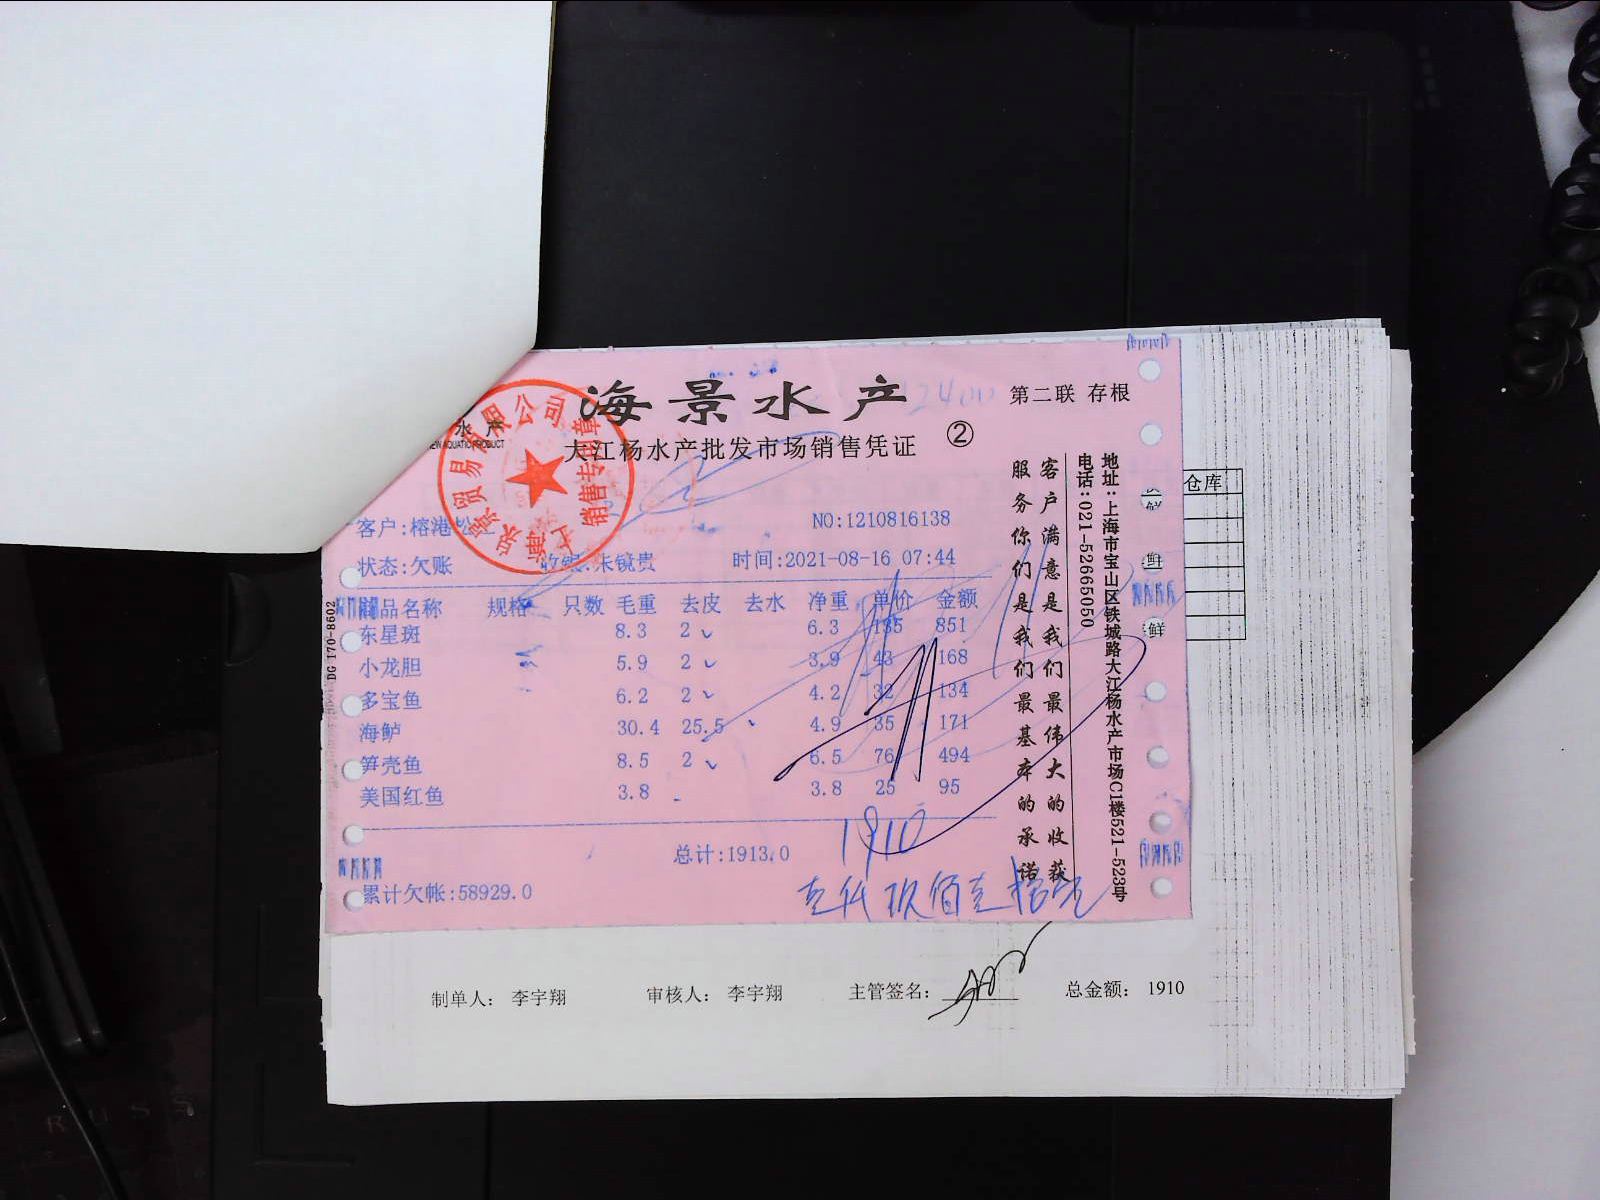 海景水产
第二联 存根
水 产
大江杨水产批发市场销售凭证
②
销售专用章
客户:榕港松江
NO:1210816138
状态:欠账
朱镜贵
时间:2021-08-16 07:44
品名称 规格 只数 毛重 去皮 去水 净重 单价 金额
东星斑 8.3 2 6.3 135 851
小龙胆 5.9 2 3.9 43 168
多宝鱼 6.2 2 4.2 32 134
海鲈 30.4 25.5 4.9 35 171
笋壳鱼 8.5 2 6.5 76 494
美国红鱼 3.8 3.8 25 95
总计:1913.0
1910
累计欠帐:58929.0
壹仟玖佰壹拾元
客户满意是我们最伟大的收获
服务你们是我们最基本的承诺
地址:上海市宝山区铁城路大江杨水产市场C1楼521-523号
电话:021-52665050
DG 170-8602
仓库
鲜
制单人: 李宇翔 审核人: 李宇翔 主管签名: 总金额: 1910